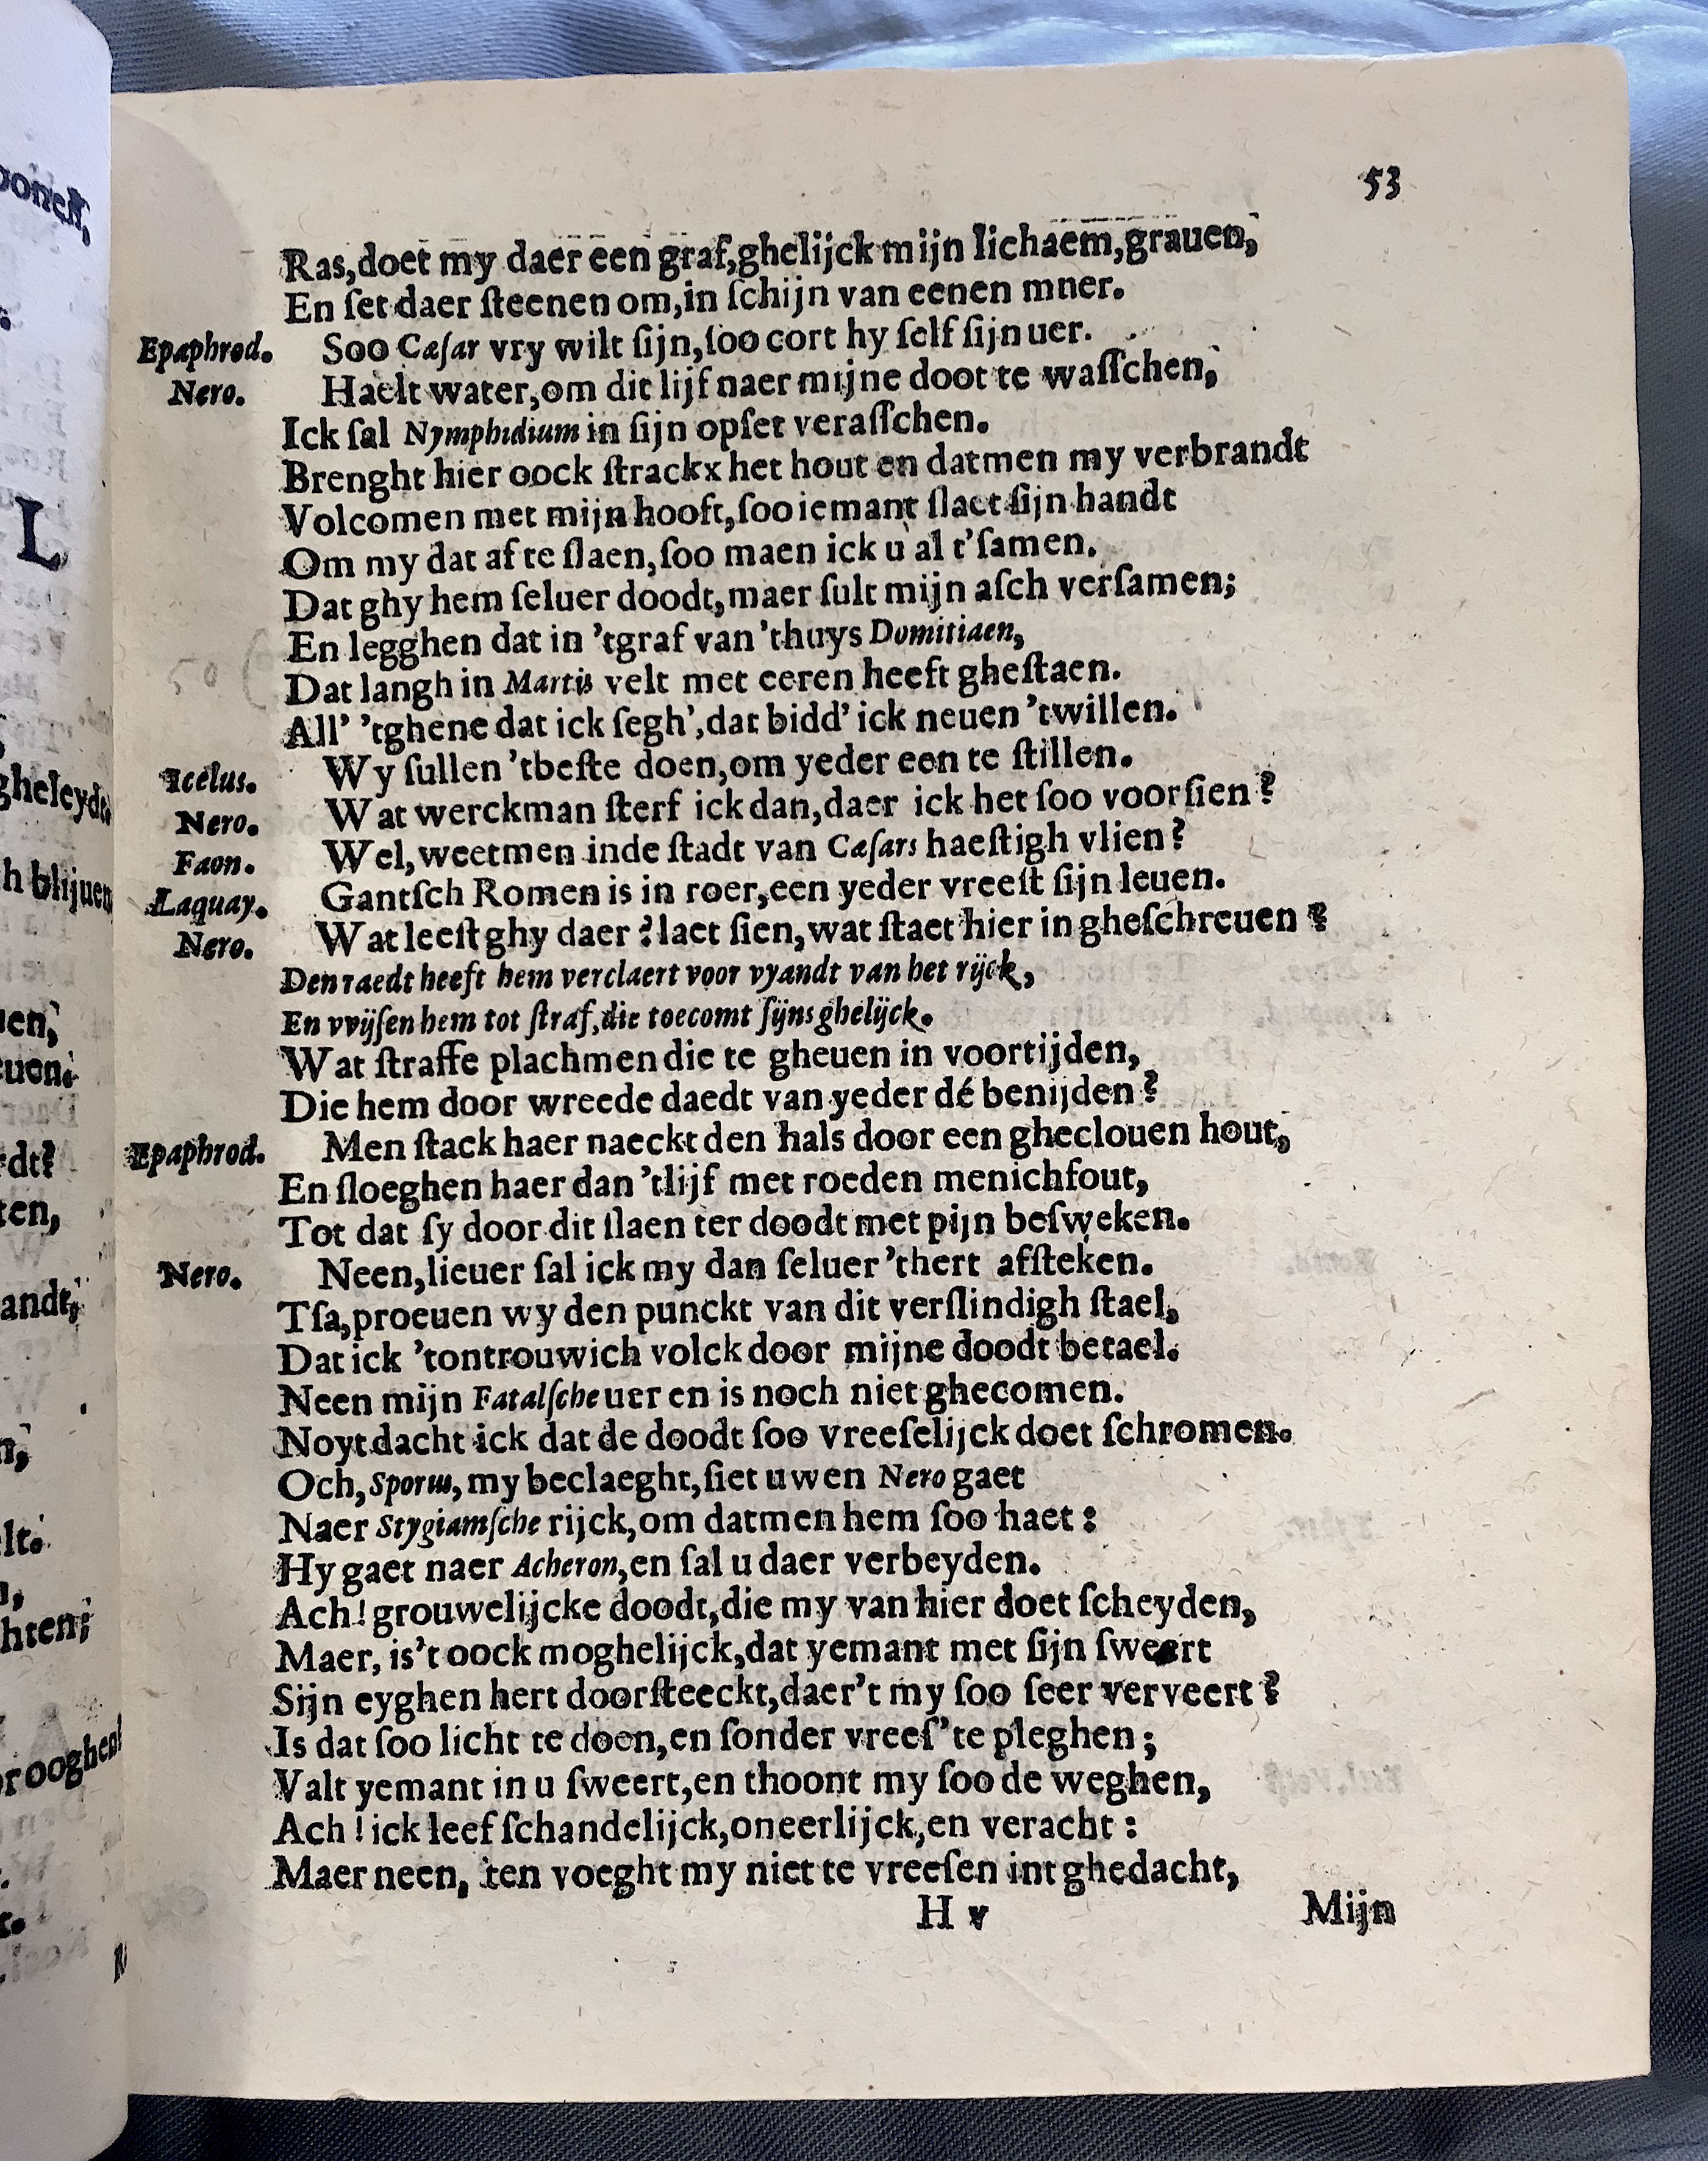 53
Ras,doet my daer een graf,ghelijck mijn lichaem,grauen,
En ſet daer ſteenen om,in ſchijn van eenen mner.
Epaphrod. Soo Cæſar vry wilt ſijn,ſoo cort hy ſelf ſijn uer.
Nero. Haelt water,om dit lijf naer mijne doot te waſſchen,
Ick ſal Nymphidium in ſijn opſet veraſſchen.
Brenght hier oock ſtrackx het hout en datmen my verbrandt
Volcomen met mijn hooft,ſoo iemant ſlaet ſijn handt
Om my dat af te ſlaen,ſoo maen ick u al t'ſamen.
Dat ghy hem ſeluer doodt,maer ſult mijn aſch verſamen;
En legghen dat in 'tgraf van 'thuys Domitiaen,
Dat langh in Martis velt met eeren heeft gheſtaen.
All' 'tghene dat ick ſegh',dat bidd' ick neuen 'twillen.
Icelus. Wy ſullen 'tbeſte doen,om yeder een te ſtillen.
Nero. Wat werckman ſterf ick dan,daer ick het ſoo voorſien?
Faon. Wel,weetmen inde ſtadt van Cæſars haeſtigh vlien?
Laquay. Gantſch Romen is in roer,een yeder vreeſt ſijn leuen.
Nero. Wat leeſt ghy daer ? laet ſien,wat ſtaet hier in gheſchreuen?
Den raedt heeft hem verclaert voor vyandt van het rijck,
En vvijſen hem tot ſtraf,die toecomt ſijns ghelijck.
Wat ſtraffe plachmen die te gheuen in voortijden,
Die hem door wreede daedt van yeder dé benijden?
Epaphrod. Men ſtack haer naeckt den hals door een gheclouen hout,
En ſloeghen haer dan 'tlijf met roeden menichfout,
Tot dat ſy door dit ſlaen ter doodt met pijn beſweken.
Nero. Neen,lieuer ſal ick my dan ſeluer 'thert afſteken.
Tſa,proeuen wy den punckt van dit verſlindigh ſtael,
Dat ick 'tontrouwich volck door mijne doodt betael.
Neen mijn Fatalſche uer en is noch niet ghecomen.
Noyt dacht ick dat de doodt ſoo vreeſelijck doet ſchromen.
Och,Sporus,my beclaeght,ſiet uwen Nero gaet
Naer Stygiamſche rijck,om datmen hem ſoo haet:
Hy gaet naer Acheron,en ſal u daer verbeyden.
Ach! grouwelijcke doodt,die my van hier doet ſcheyden,
Maer, is't oock moghelijck,dat yemant met ſijn ſweert
Sijn eyghen hert doorſteeckt,daer't my ſoo ſeer verveert?
Is dat ſoo licht te doen,en ſonder vreeſ' te pleghen;
Valt yemant in u ſweert,en thoont my ſoo de weghen,
Ach! ick leef ſchandelijck,oneerlijck,en veracht:
Maer neen, ten voeght my niet te vreeſen int ghedacht,
H v
Mijn